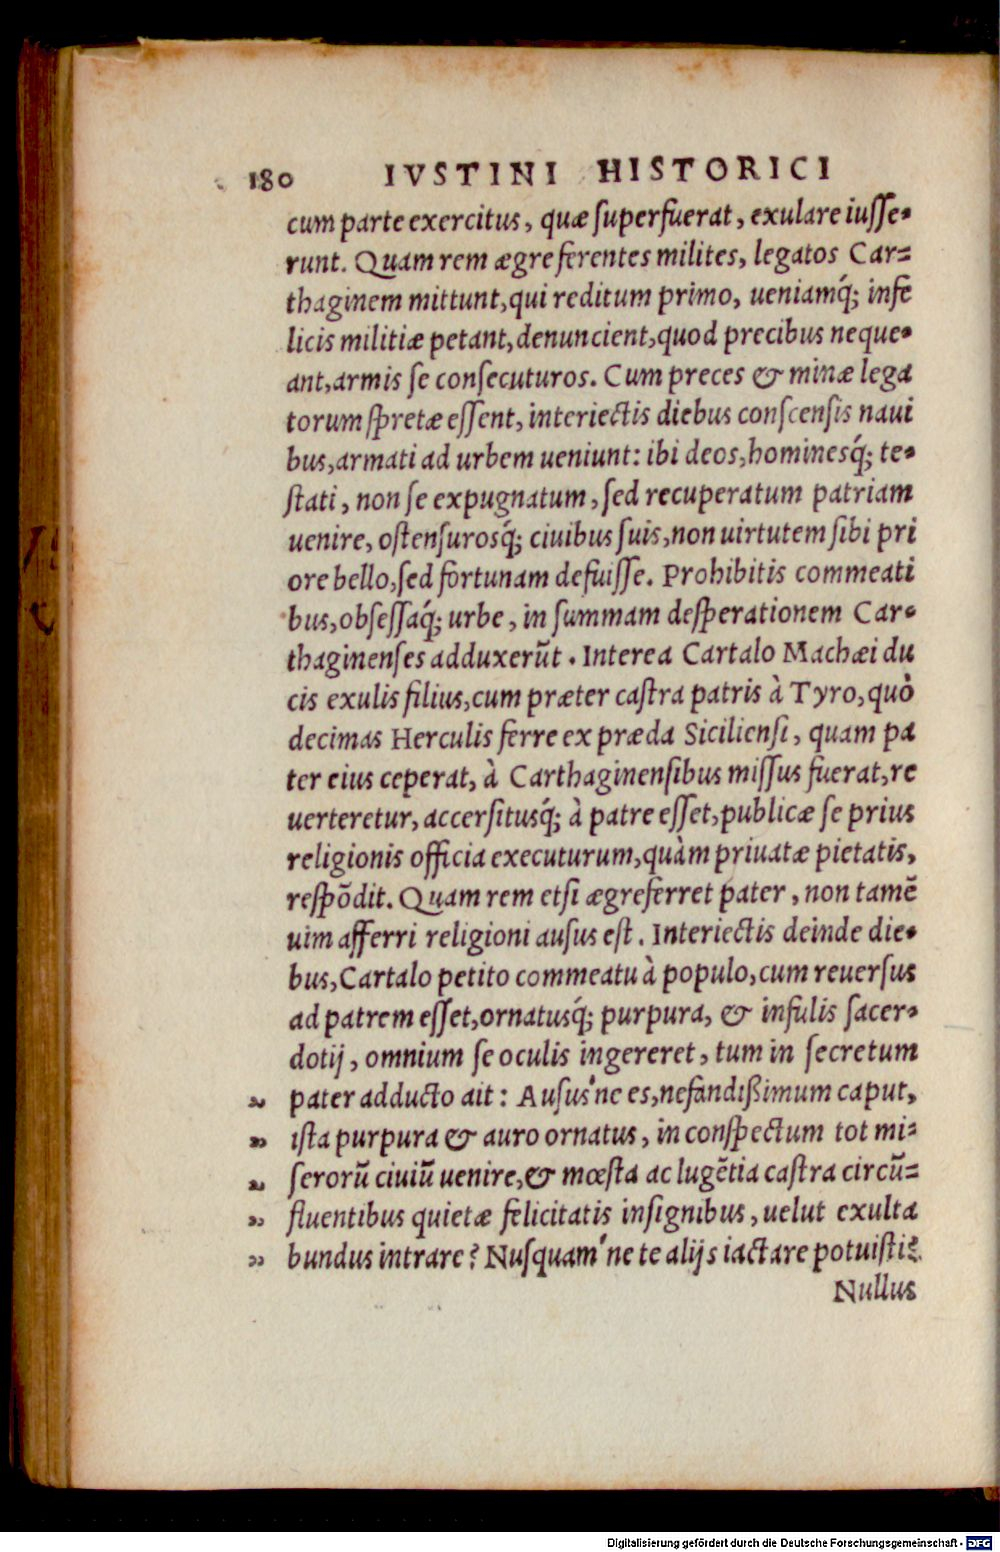 180 IVSTINI HISTORICI
cum parte exercitus, quæ ſuperfuerat, exulare iuſſe-
runt. Quam rem ægre ferentes milites, legatos Car=
thaginem mittunt, qui reditum primo, ueniamq́; infe
licis militiæ petant, denuncient, quod precibus neque-
ant, armis ſe conſecuturos. Cum preces & minæ lega
torum ſpretæ eſſent, interiectis diebus conſcenſis naui
bus, armati ad urbem ueniunt: ibi deos, hominesq́; te-
ſtati, non ſe expugnatum, ſed recuperatum patriam
uenire, oſtenſurosq́; ciuibus ſuis, non uirtutem ſibi pri
ore bello, ſed fortunam defuiſſe. Prohibitis commeati
bus, obſeſſaq́; urbe, in ſummam deſperationem Car-
thaginenſes adduxerūt. Interea Cartalo Machæi du
cis exulis filius, cum præter caſtra patris à Tyro, quò
decimas Herculis ferre ex præda Sicilienſi, quam pa
ter eius ceperat, à Carthaginenſibus miſſus fuerat, re
uerteretur, accerſitusq́; à patre eſſet, publicæ ſe prius
religionis officia executurum, quàm priuatæ pietatis,
reſpōdit. Quam rem etſi ægre ferret pater, non tamē
uim afferri religioni auſus eſt. Interiectis deinde die-
bus, Cartalo petito commeatu à populo, cum reuerſus
ad patrem eſſet, ornatusq́; purpura, & infulis ſacer-
dotij, omnium ſe oculis ingereret, tum in ſecretum
„ pater adducto ait: Auſus'ne es, nefandißimum caput,
„ iſta purpura & auro ornatus, in conſpectum tot mi=
„ ſerorū ciuiū uenire, & mœſta ac lugētia caſtra circū=
„ fluentibus quietæ felicitatis inſignibus, uelut exulta
„ bundus intrare? Nuſquam'ne te alijs iactare potuiſti?
Nullus
Digitalisierung gefördert durch die Deutsche Forschungsgemeinschaft - DFG